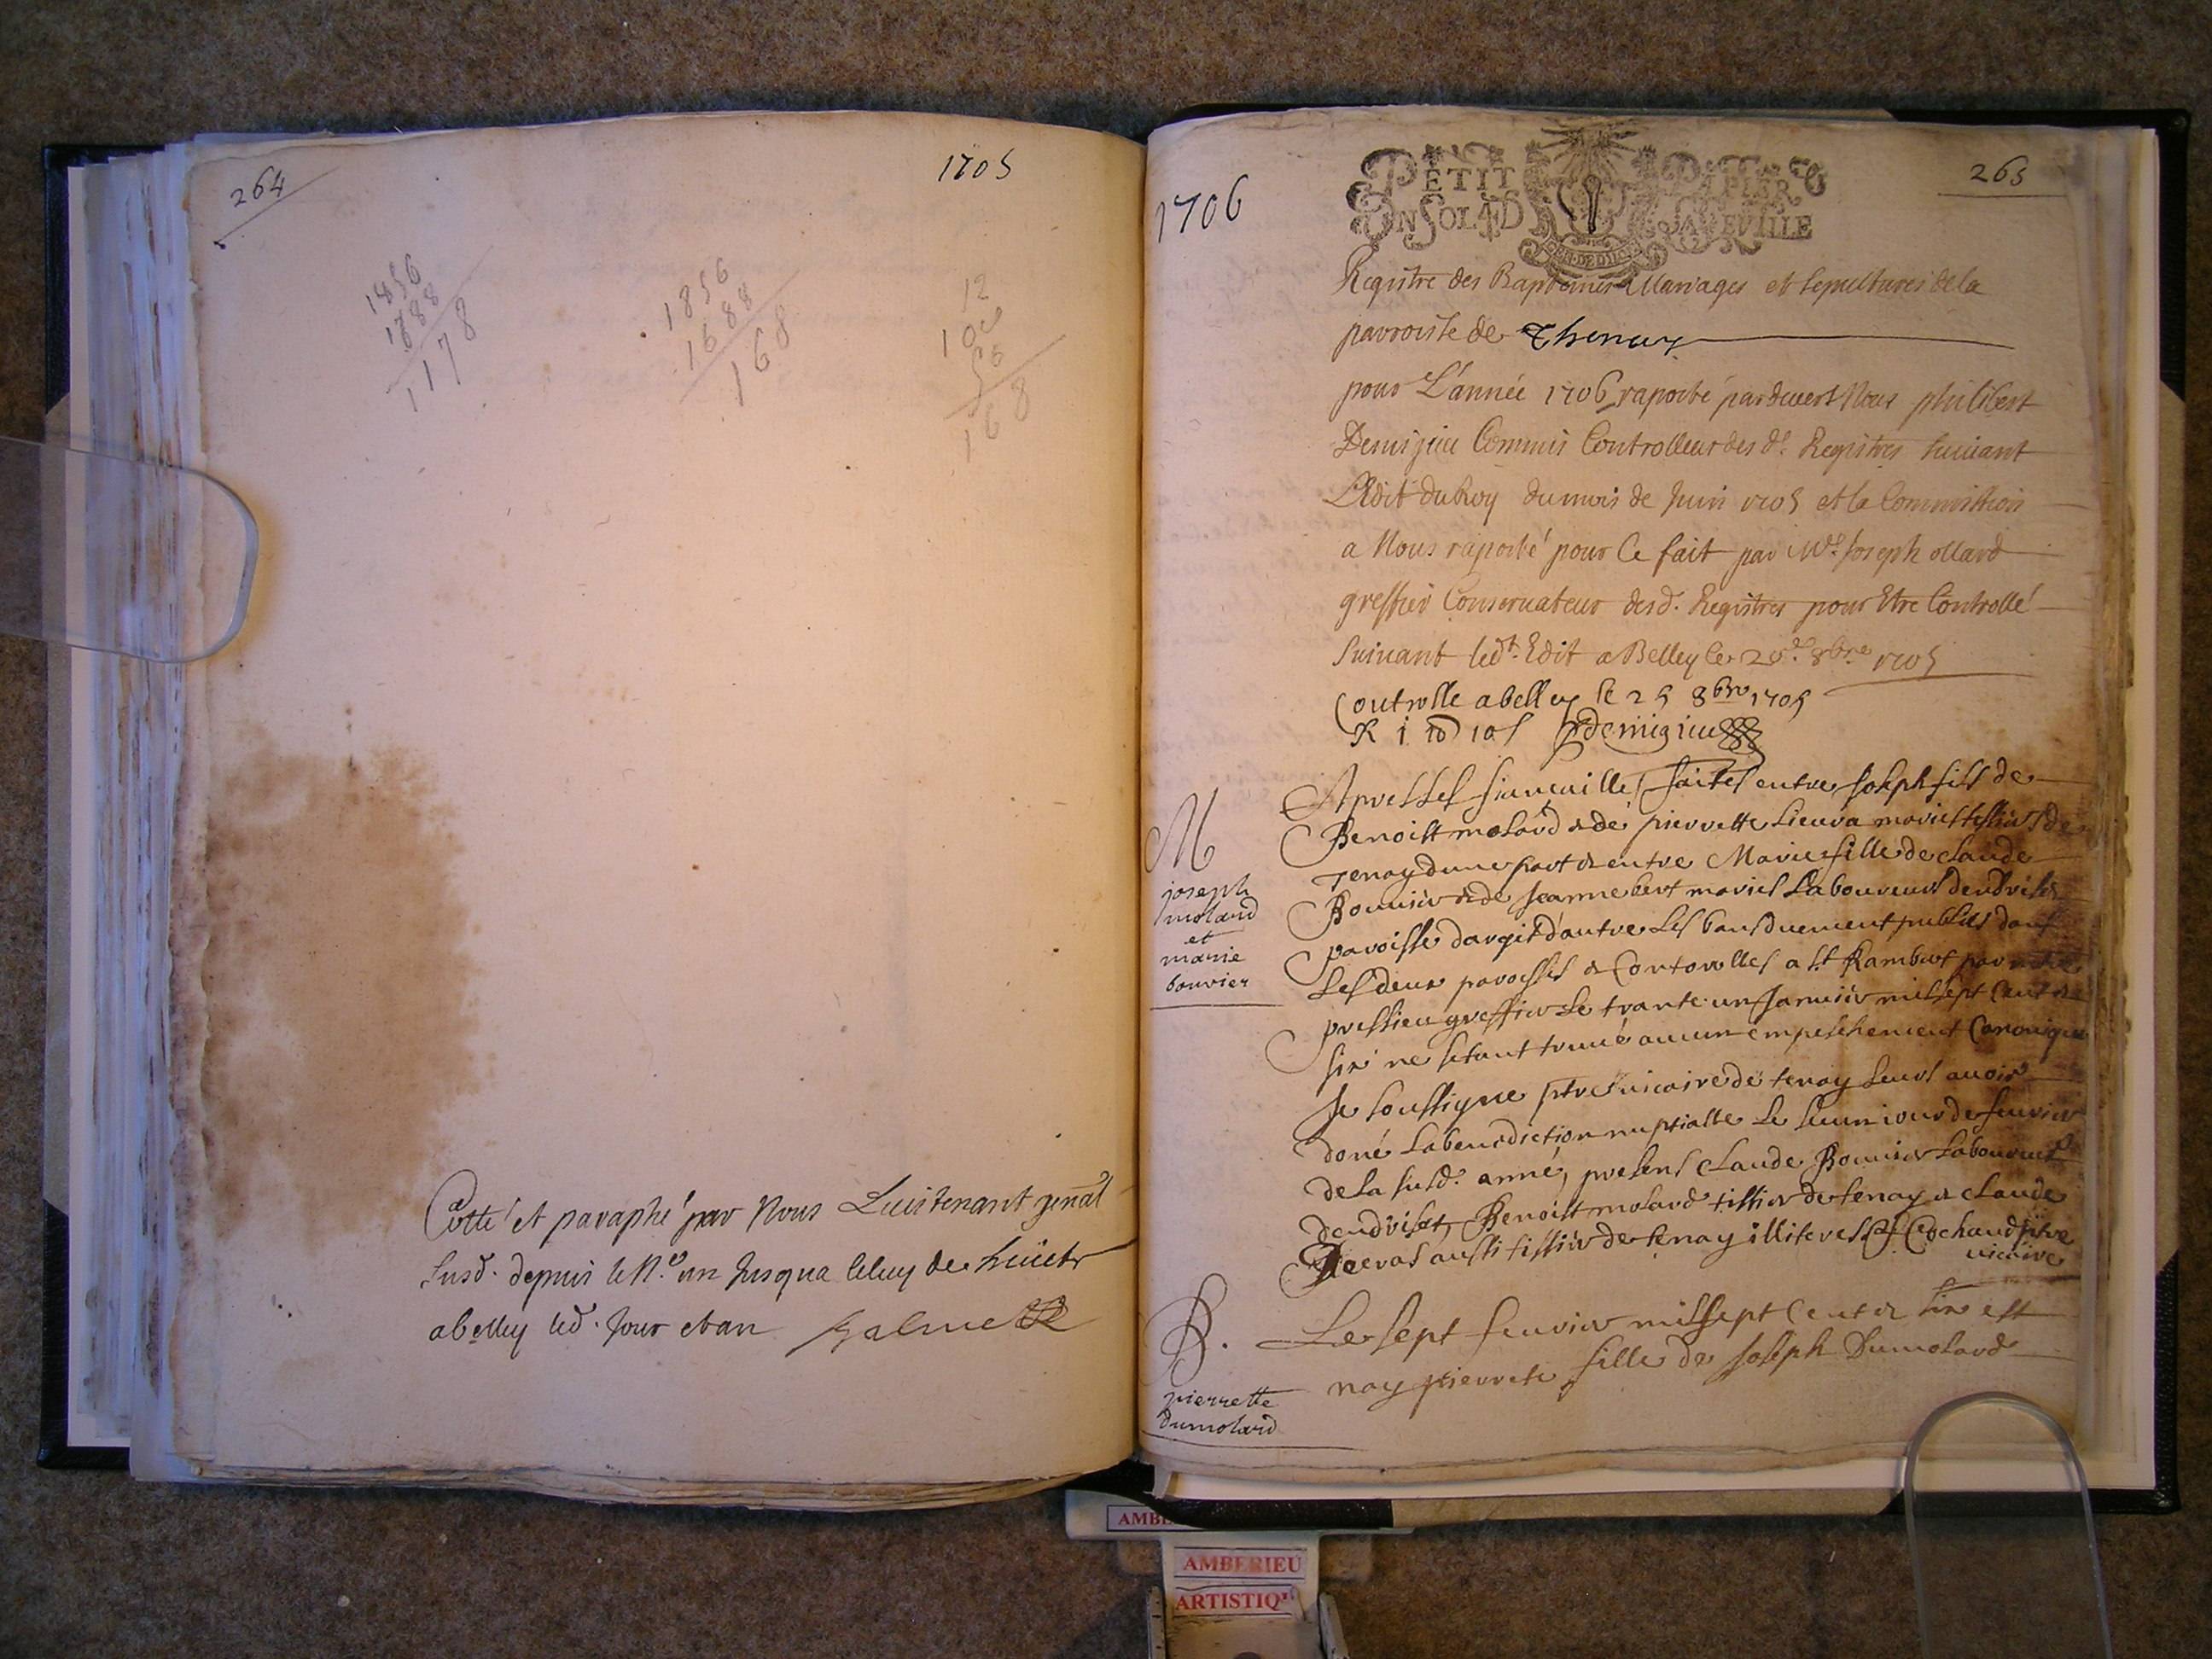 264
1705
1856
1688
1178
1856
1688
168
12
10
56
168
Cotté et paraphé par Nous Luistenant genal
susd. depuis le N.o un Jusqua celuy de huict
abelley led. Jour et an
1706
265
PETIT PAPIER
UN SOL 4D LA FEUILLE
Registre des Baptesmes Mariages et sepultures de la
parroisse de Thenay
pour L'année 1706 raporté pardevert Nous philibert
Demigieu Commis Controlleur des d. Registres suivant
L'Edit du Roy du mois de Juin 1705 et la Commission
a Nous raporté pour Ce fait par Me Joseph ollard
greffier Conservateur desd. Registres pour Etre Controllé
Suivant led.t Edit a Belley le 8bre 1705
Controlle abelley le 25 8bre 1705
demigieu
M
joseph
molard
et
marie
bouvier
Apres les fiancailles faites entre Joseph fils de
Benoist molard & de pierrette Lieura mariés tissiers de
Tenay dune part & entre Marie fille de claude
Bouvier & de Jeanne bert mariés Laboureurs dendriset
paroisse dargit dautre Les bans duement publiés dans
Les deux paroisses & Contorolles a St Rambert par
pressieu greffier Le trante un Janvier mil sept cent &
six ne setant trouvé aucun empeschement Canonique
Je soussigne ptre vicaire de tenay Leurs avoir
doné La benediction nuptialle Le jour de feuvrier
de La susd. anné, presens Claude Bouvier Laboureur
dendriset, Benoist molard tissier de tenay & claude
aussi tissier de tenay illiteres Cochand ptre
vicaire
B.
pierrette
dumolard
Le sept feuvrier mil sept cent & six est
nay pierrete fille de Joseph Dumolard